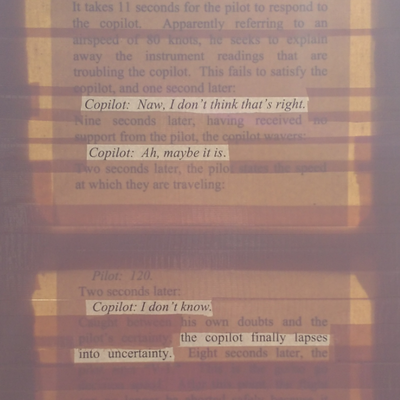 It takes 11 seconds for the pilot to respond to
the copilot. Apparently referring to an
airspeed of 80 knots, he seeks to explain
away the instrument readings that are
troubling the copilot. This fails to satisfy the
copilot, and one second later:
Copilot: Naw, I don't think that's right.
Nine seconds later, having received no
support from the pilot, the copilot wavers:
Copilot: Ah, maybe it is.
Two seconds later, the pilot states the speed
at which they are traveling:
Pilot: 120.
Two seconds later:
Copilot: I don't know.
Caught between his own doubts and the
pilot's certainty, the copilot finally lapses
into uncertainty. Eight seconds later, the